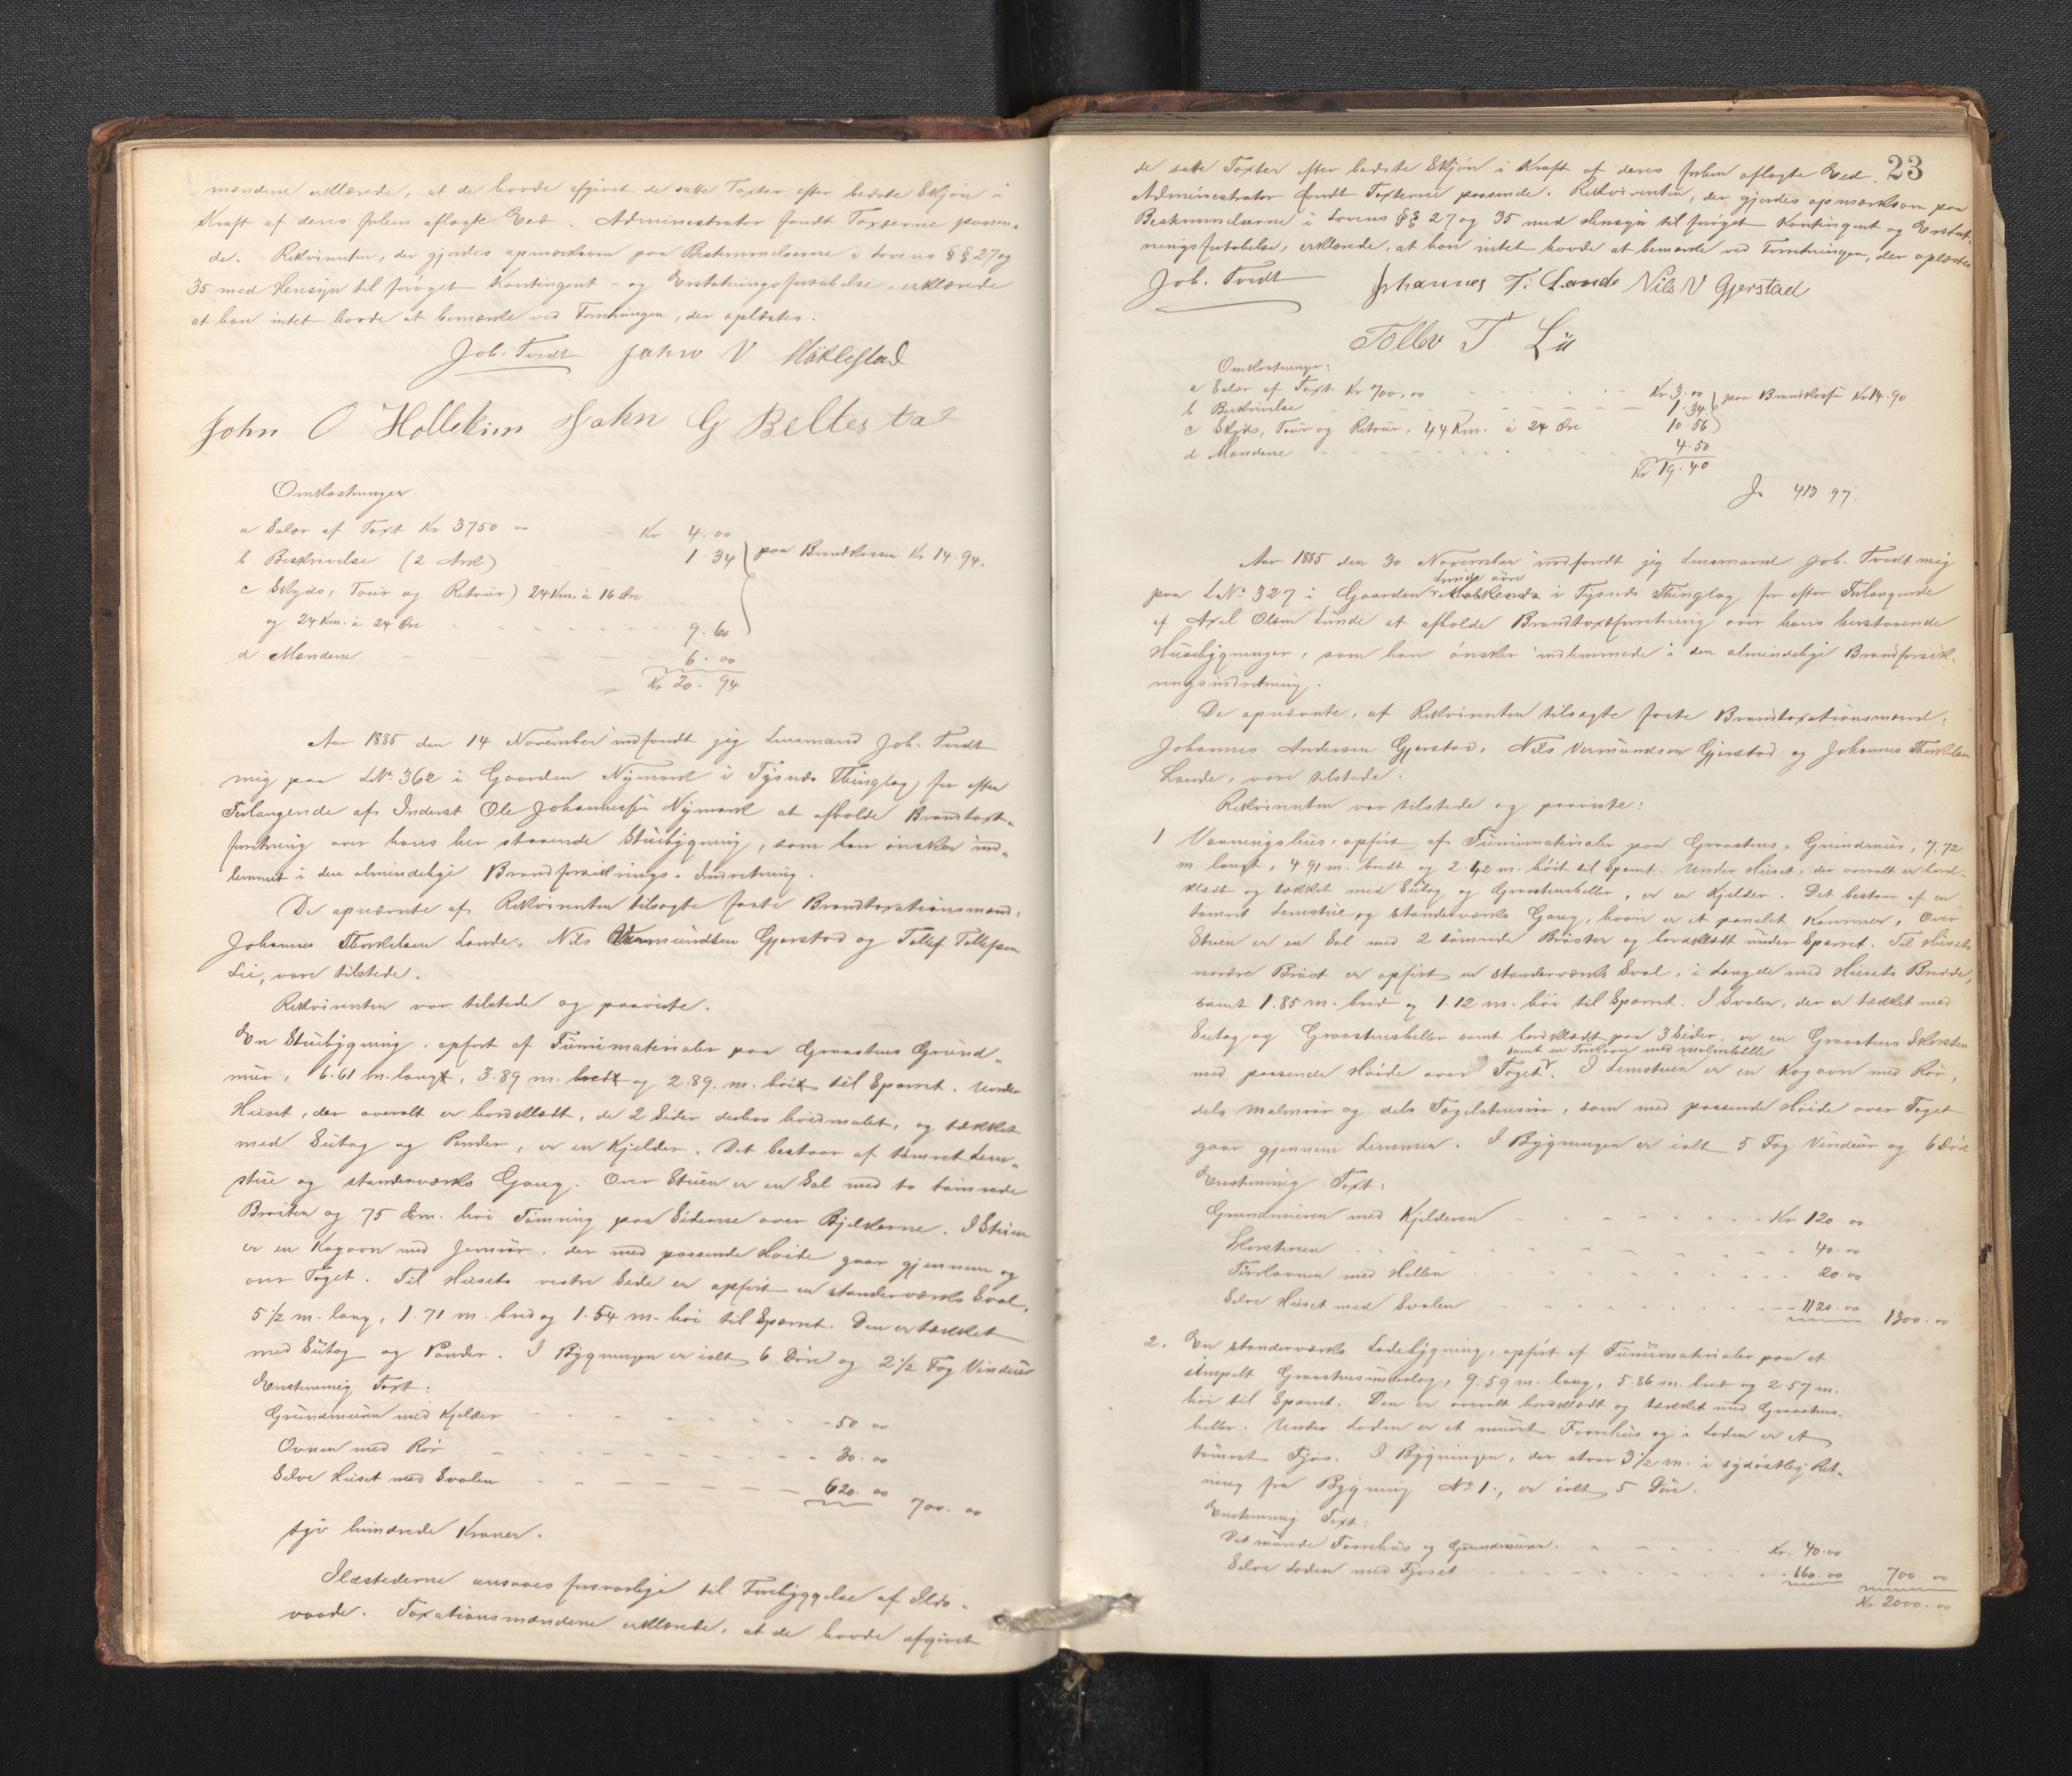 mændene erklærede, at de havde afgivet de satte Taxter efter bedste Skjøn i
Kraft af deres forhen aflagte Eed. Administrator fandt Taxterne passen-
de. Rekvirenten, der gjordes opmærksom paa Bestemmelserne i Lovens §§ 27 og
35 med Hensyn til forøget Kontingent- og Erstatningsfortabelse, erklærede
at han intet havde at bemærke ved Forretningen, der oplæstes.
Joh. Tvedt John V Møklestad
John O Hollekim John G Beltestad
Omkostninger.
a Salær af Taxt Kr 3750 00 Kr 4.00
b Beskrivelse (2 Ark) 1.34 paa Brandkassen Kr 14.94.
c Skyds, Tour og Retour) 24 Km. à 16 Øre
og 24 Km. à 24 Øre 9.60
d Mændene 6.00
Kr 20.94
Aar 1885 den 14 November indfandt jeg Lensmand Joh. Tvedt
mig paa L.No 362 i Gaarden Nymark i Tysnæs Thinglag for efter
Forlangende af Inderst Ole Johannessen Nymark at afholde Brandtaxt-
forretning over hans her staaende Stuebygning, som han ønsker ind-
lemmet i den almindelige Brandforsikrings-Indretning.
De opnævnte af Rekvirenten tilsagte faste Brandtaxationsmænd:
Johannes Thorkelsen Lande, Nils Vermundsen Gjerstad og Tollef Tollefsen
Lie, vare tilstede.
Rekvirenten var tilstede og paaviste.
En Stuebygning, opført af Furumaterialer paa Graastens Grund-
mur, 6.61 m. langt, 3.89 m. bredt og 2.89. m. høit til Sparret. Under
Huset, der overalt er bordklædt, de 2 Sider derhos hvidmalet, og tækket
med Sutag og Pander, er en Kjelder. Det bestaar af tømret Lem-
stue og standerværks Gang. Over Stuen er en Sal med to tømrede
Brøster og 75 Cm. høi Tømring paa Siderne over Bjelkerne. I Stuen
er en Kogovn med Jernrør, der med passende Høide gaar gjennem og
over Taget. Til Husets vestre Side er opført en standerværks Sval,
5 1/2 m. lang, 1.71 m. bred og 1.54 m. høi til Sparret. Den er tækket
med Sutag og Pander. I Bygningen er ialt 6 Døre og 2 1/2 Fag Vinduer
Enstemmig Taxt:
Grundmuren med Kjelder 50 00
Ovnen med Rør 30.00
Selve Huset med Svalen 620.00 700.00
syv hundrede Kroner.
Ildstederne ansaaes forsvarlige til Forebyggelse af Ilds-
vaade. Taxationsmændene erklærede, at de havde afgivet
23
de satte Taxter efter bedste Skjøn i Kraft af deres forhen aflagte Eed.
Administrator fandt Taxterne passende. Rekvirenten, der gjordes opmærksom paa
Bestemmelserne i Lovens §§ 27 og 35 med Hensyn til forøget Kontingent og Erstat-
ningsfortabelse, erklærede, at han intet havde at bemærke ved Forretningen, der oplæstes
Joh. Tvedt Johannes T. Lande Nils V Gjerstad
Tollev T Lie
Omkostninger:
a Salær af Taxt Kr 700,00 Kr 3.00 paa Brandkassen Kr 14.90
b Beskrivelse 1.34
c Skyds, Tour og Retour, 44 Km. à 24 Øre 10.56
d Mændene 4.50
Kr 19.40
Jr 413.97.
Aar 1885 den 30 November indfandt jeg Lensmand Joh. Tvedt mig
Lunde øvre
paa L.No 327 i Gaarden i Tysnæs Thinglag for efter Forlangende
af Axel Olsen Lunde at afholde Brandtaxtforretning over hans herstaaende
Husebygninger, som han ønsker indlemmede i den almindelige Brandforsik-
ringsindretning.
De opnævnte, af Rekvirenten tilsagte faste Brandtaxationsmænd,
Johannes Andersen Gjerstad, Nils Vermundsen Gjerstad og Johannes Thorkelsen
Lande, vare tilstede.
Rekvirenten var tilstede og paaviste:
1 Vaaningshus, opført af Furumaterialer paa Graastens-Grundmur, 7.72
m. langt, 4.91 m. bredt og 2.42 m. høit til Sparret. Under Huset, der overalt er bord-
klædt og tækket med Sutag og Graastensheller, er en Kjelder. Det bestaar af en
tømret Lemstue og standerværks Gang, hvori er et panelet Kammer. Over
Stuen er en Sal med 2 tømrede Brøster og bordklædt under Sparret. Til Husets
nordre Brøst er opført en standerværks Sval, i Længde med Husets Bredde,
samt 1.85 m. bred og 1.12 m. høi til Sparret. I Svalen, der er tækket med
Sutag og Graastensheller samt bordklædt paa 3 Sider, er en Graastens Skorsten
samt en Torkovn med Malmhelle
med passende Høide over Taget. I Lemstuen er en Kogovn med Rør,
dels Malmrør og dels Tagelstensrør, som med passende Høide over Taget
gaar gjennem Lemmen. I Bygningen er ialt 5 Fag Vinduer og 6 Døre
Enstemmig Taxt:
Grundmuren med Kjelderen Kr 120 00
Skorstenen 40.00
Torkovnen med Hellen 20.00
Selve Huset med Svalen 1120.00 1300.00
2. En standerværks Ladebygning, opført af Furumaterialer paa et
simpelt Graastensunderlag, 9.59 m. lang, 5.86 m. bred og 2.57 m.
høi til Sparret. Den er overalt bordklædt og tækket med Graastens-
heller. Under Laden er et muret Faarehus og i Laden er et
tømret Fjøs. I Bygningen, der staar 3 1/2 m. i sydøstlig Ret-
ning fra Bygning No 1., er ialt 5 Døre.
Enstemmig Taxt:
Det murede Faarehus og Grundmuren Kr. 40.00
Selve Laden med Fjøset 660.00 700.00
Kr 2000.00